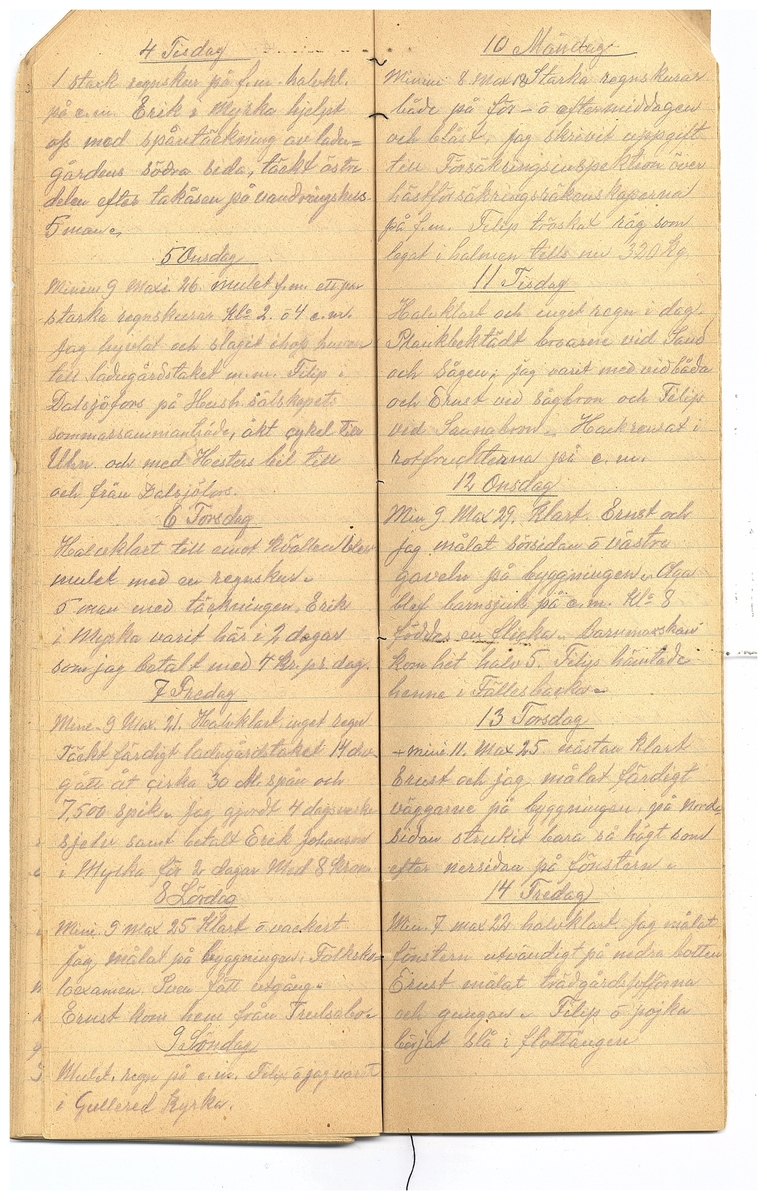 4 Tisdag
1 stark regnskur på f.m. halvkl.
på e.m. Erik i Myrka hjelpt
oss med spåntäckning av ladu=
gårdens södra sida, täckt östra
delen efter takåsen på vandringshus
5 man.
5 Onsdag
Minim 9 Maxi. 26. mulet f.m. ett par
starka regnskurar Kl: 2. ö 4 e.m.
Jag hyvlat och slagit ihop
till ladugårdstaket m.m. Filip i
Dalsjöfors på Hush. Sälskapets
sommarsammanträde, åkt cykel till
Uhn. och med Hesters bil till
och från Dalsjöfors.
6 Torsdag
Halvklart till emot kvällen blev
mulet med en regnskur.
5 man med täckningen. Erik
i Myrka varit här i 2 dagar
som jag betalt med 4 Kr. pr. dag.
7 Fredag
Mini. 9 Max. 21. Halvklart, inget regn
Täckt färdigt ladugårdstaket 14 dsv.
gått åt cirka 30 M. spån och
7,500 spik. Jag gjordt 4 dagsverke
sjelv samt betalt Erik Johanson
i Myrka för 2 dagar Med 8 Kronor
8 Lördag
Mini. 9 max 25 Klart ö vackert
Jag målat på byggningen. Folksko-
laexamen. Sven fått utgång.
Ernst kom hem från Trulsabo.
9 Söndag
Mulet. regn på e.m. Filip ö jag varit
i Gullered Kyrka.
10 Måndag
Minim 8 Max 18 Starka regnskurar
både på för- ö eftermiddagen
och blåst, Jag skrivit uppgift
till Försäkringsinspektion över
hästförsäkringsräkenskaperna
på f.m. Filip tröskat råg som
legat i halmen tills nu 320 Kg.
11 Tisdag
Halvklart och inget regn i dag.
Plankbeklädt broarne vid Sand
och Sågen; jag varit med vid båda
och Ernst vid sågbron och Filip
vid Saunabron. Hackrensat i
rotfrukterna på e.m.
12 Onsdag
Min 9. Max 29. Klart. Ernst och
jag målat sörsidan ö västra
gaveln på byggningen. Olga
blef barnsjuk på e.m. Kl: 8
föddes en flicka. Barnmorskan
kom hit halv 5. Filip hämtade
henne i Fällesbacka.
13 Torsdag
- mini 11. Max 25 nästan klart
Ernst och jag målat färdigt
väggarne på byggningen, på nord-
sidan strukit bara så högt som
efter nersidan på fönstern.
14 Fredag
Min. 7 max 22 halvklart. Jag målat
fönstern utvändigt på nedra botten
Ernst målat trädgårdssofforna
och gungan. Filip ö pojka
börjat slå i flottängen